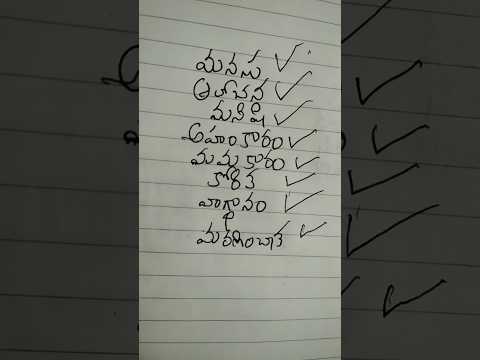 మనసు
ఆలోచన
మనిషి
అహంకారం
మమకారం
కోరిక
వాగ్దానం